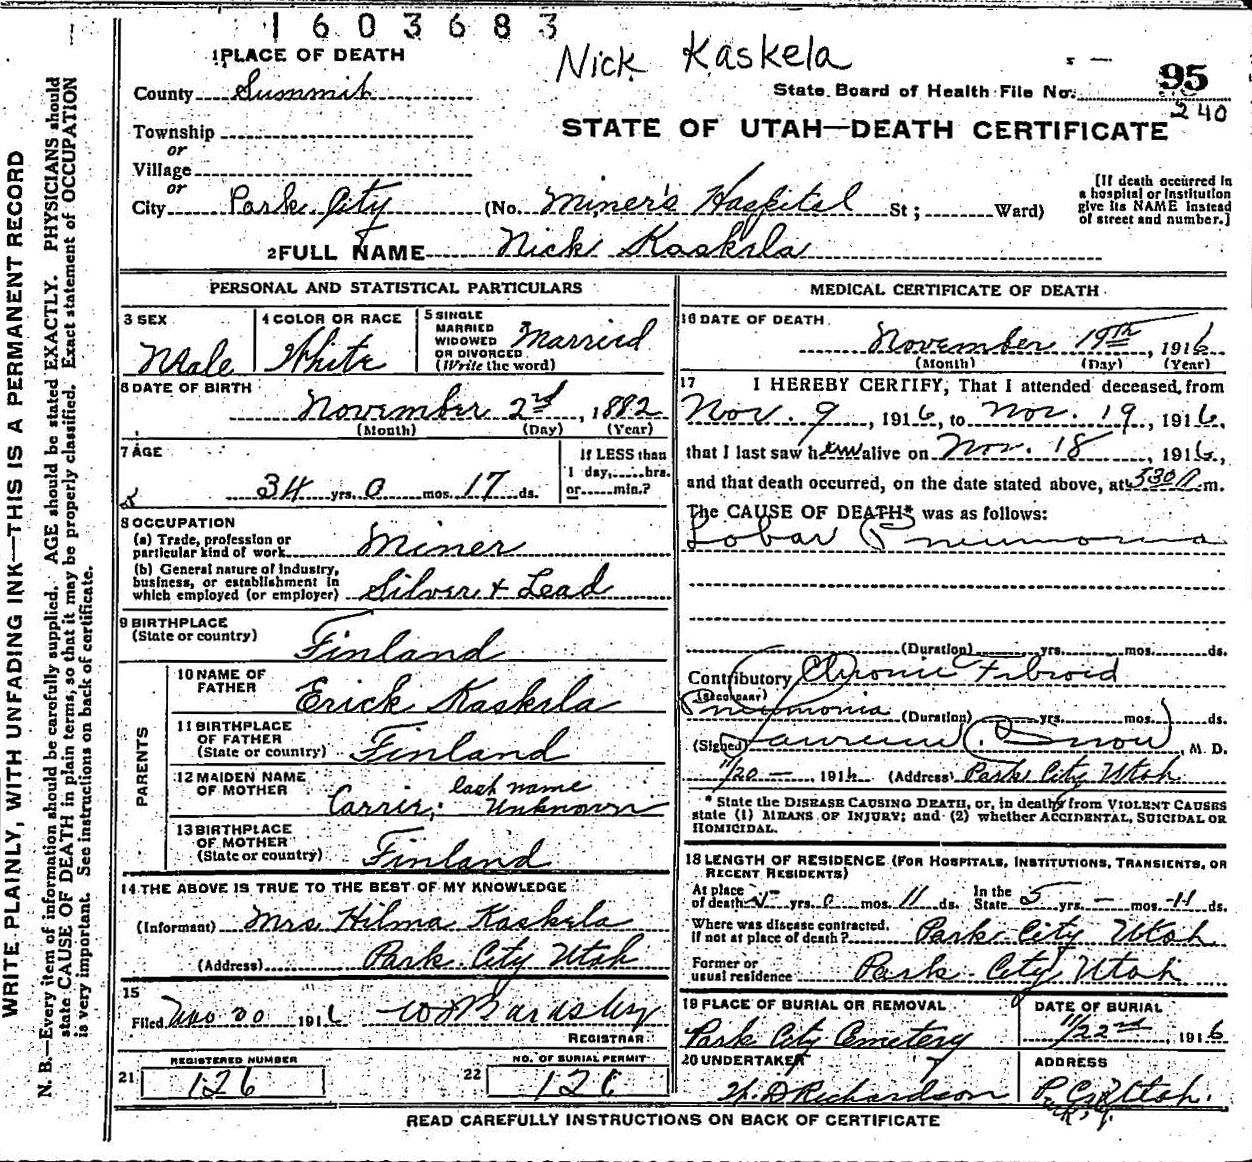 1603683
1 PLACE OF DEATH
Nick Kaskela
County Summit
State Board of Health File No. 95
240
Township
or
Village
or
STATE OF UTAH—DEATH CERTIFICATE
City Park City (No. Miner's Hospital St; Ward)
[If death occurred in a hospital or institution give its NAME instead of street and number.]
2 FULL NAME Nick Kaskela
PERSONAL AND STATISTICAL PARTICULARS
3 SEX Male
4 COLOR OR RACE White
5 SINGLE MARRIED WIDOWED OR DIVORCED (Write the word) Married
6 DATE OF BIRTH
November 2nd, 1882
(Month) (Day) (Year)
7 AGE
34 yrs. 0 mos. 17 ds.
If LESS than 1 day, hrs. or min.?
8 OCCUPATION
(a) Trade, profession or particular kind of work Miner
(b) General nature of industry, business, or establishment in which employed (or employer) Silver + Lead
9 BIRTHPLACE
(State or country) Finland
PARENTS
10 NAME OF FATHER Erick Kaskela
11 BIRTHPLACE OF FATHER (State or country) Finland
12 MAIDEN NAME OF MOTHER Carrie; last name Unknown
13 BIRTHPLACE OF MOTHER (State or country) Finland
14 THE ABOVE IS TRUE TO THE BEST OF MY KNOWLEDGE
(Informant) Mrs Hilma Kaskela
(Address) Park City Utah
15
Filed Nov 20 1916
REGISTRAR
REGISTERED NUMBER
21 126
NO. OF BURIAL PERMIT
22 126
MEDICAL CERTIFICATE OF DEATH
16 DATE OF DEATH
November 19th, 1916
(Month) (Day) (Year)
17 I HEREBY CERTIFY, That I attended deceased from
Nov. 9, 1916, to Nov. 19, 1916,
that I last saw him alive on Nov. 18, 1916,
and that death occurred, on the date stated above, at 530 m.
The CAUSE OF DEATH* was as follows:
Lobar Pneumonia
(Duration) yrs. mos. ds.
Contributory Chronic Fibroid
(SECONDARY)
Pneumonia (Duration) yrs. mos. ds.
(Signed) Snow, M. D.
11/20 — 1916 (Address) Park City Utah
* State the DISEASE CAUSING DEATH, or, in deaths from VIOLENT CAUSES
state (1) MEANS OF INJURY; and (2) whether ACCIDENTAL, SUICIDAL OR
HOMICIDAL.
18 LENGTH OF RESIDENCE (FOR HOSPITALS, INSTITUTIONS, TRANSIENTS, OR
RECENT RESIDENTS)
At place of death yrs. 0 mos. 11 ds. In the State 5 yrs. - mos. ds.
Where was disease contracted, if not at place of death? Park City Utah
Former or usual residence Park City Utah
19 PLACE OF BURIAL OR REMOVAL
Park City Cemetery
DATE OF BURIAL
11/22nd, 1916
20 UNDERTAKER
Richardson
ADDRESS
P. C. Utah.
READ CAREFULLY INSTRUCTIONS ON BACK OF CERTIFICATE
WRITE PLAINLY, WITH UNFADING INK—THIS IS A PERMANENT RECORD
N. B.—Every item of information should be carefully supplied. AGE should be stated EXACTLY. PHYSICIANS should
state CAUSE OF DEATH in plain terms, so that it may be properly classified. Exact statement of OCCUPATION
is very important. See instructions on back of certificate.